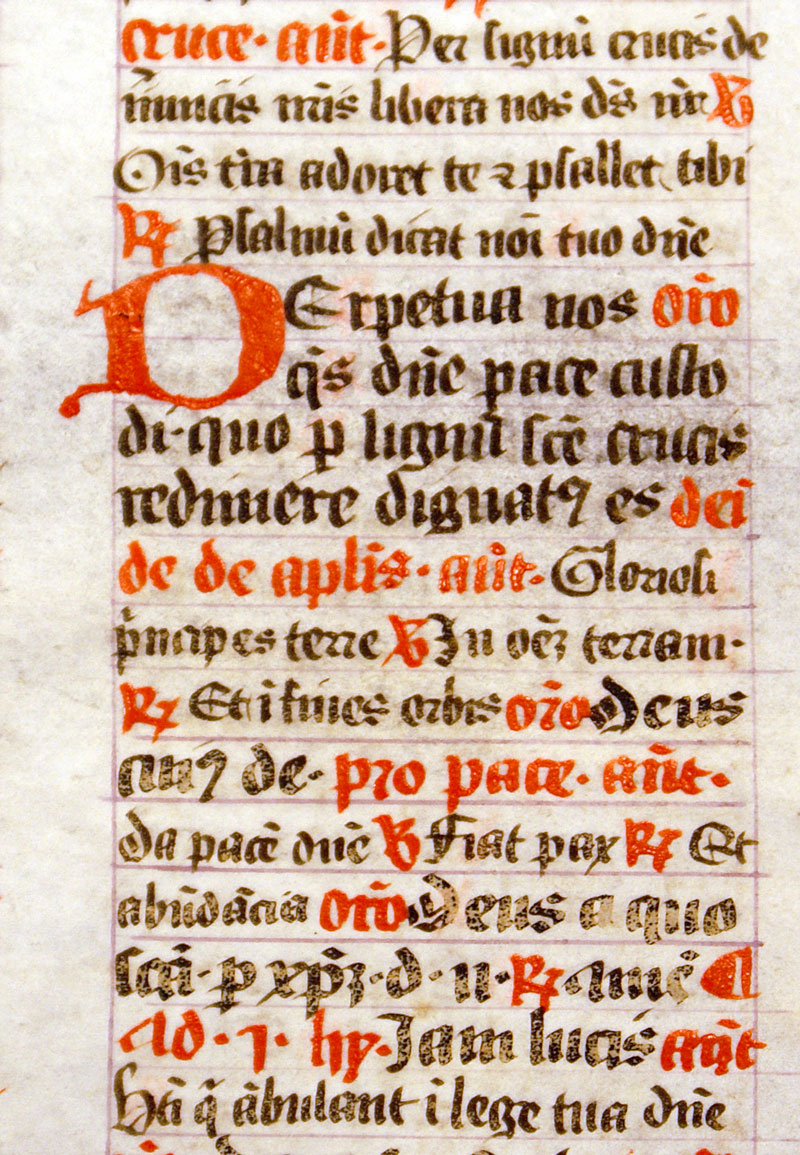 cruce· an̄t· Per signū crucis de
īimicis nr̄is libera nos ds̄ nr̄ ꝟ
Oīs tr̄ra adoret te ⁊ psallet tibi
℞ Psalmū dicat nōī tuo dn̄e
PErpetua nos or̄o
q̄s dn̄e pace custo
di· quo ꝑ lignū scē crucis
redimere dignatꝰ es dei
de de apl̄is· an̄t· Gloriosi
pͥncipes terre ꝟ In oēꝫ terram·
℞ Et ī fines orbis or̄o Deus
cuiꝰ de· pro pace· an̄t·
Da pacē dn̄e ꝟ Fiat pax ℞ Et
abūdācia or̄o Deus a quo
scā· ꝑ xp̄ꝫ· d· n· ℞ amē ¶
Ad· 1· hy· Jam lucis an̄t
Bt̄i q̄ ābulant ī lege tua dn̄e